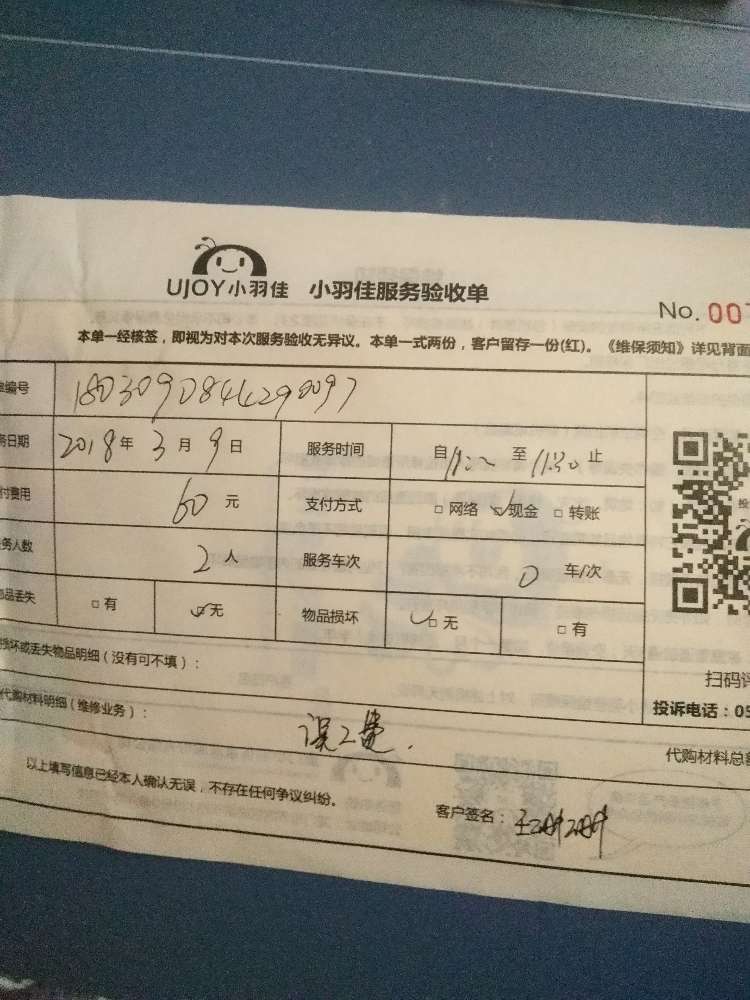 UJOY小羽佳 小羽佳服务验收单
No. 00
本单一经核签，即视为对本次服务验收无异议。本单一式两份，客户留存一份(红)。《维保须知》详见背面
编号 1803090844290097
务日期 2018年3月9日 服务时间 自11:00至11:30止
付费用 60元 支付方式 □网络 ☑现金 □转账
务人数 2人 服务车次 0车/次
品丢失 □有 ☑无 物品损坏 ☑无 □有
损坏或丢失物品明细（没有可不填）：
扫码评
代购材料明细（维修业务）： 误工费.
投诉电话：05
代购材料总额
以上填写信息已经本人确认无误，不存在任何争议纠纷。
客户签名：